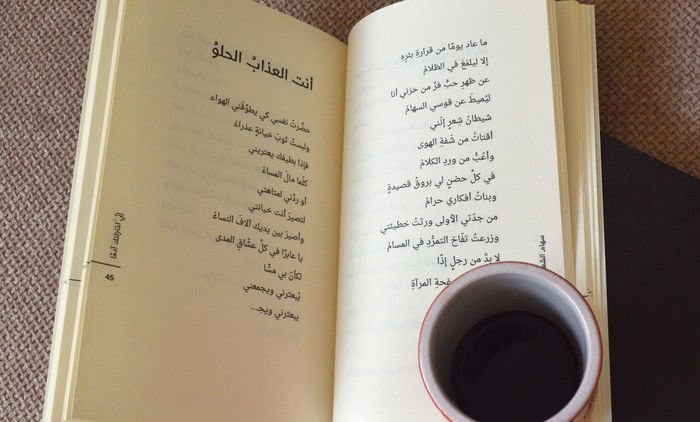 ما عاد يومًا من قرارةِ بئرِهِ
إلا ليلمَعَ في الظلامْ
عن ظهرِ حبٍّ فرَّ من حزني أنا
ليُميطَ عن قوسي السهامْ
شيطانُ شِعرٍ إنّني
أقتاتُ من شَفَةِ الهوى
وأعُبُّ من وردِ الكلامْ
في كلِّ حضنٍ لي بروقُ قصيدةٍ
وبناتُ أفكاري حرامْ
من جدّتي الأولى ورثتُ خطيئتي
وزرعتُ تفّاحَ التمرُّدِ في المسامْ
لا بدَّ من رجلٍ إذًا
المرآةِ
سهام
أنت العذابُ الحلوُ
حضَّرتُ نفسي كي يطوِّقَني الهواء
ولبستُ ثوبَ خيانةٍ عذراءُ
فإذا بطيفك يعتريني
كلّما مالَ المساءُ
أو ردَّني لمتاهتي
لتصيرَ أنت خيانتي
وأصيرَ بين يديك آلافَ النساءُ
يا عابرًا في كلِّ عشّاقِ المدى
لكأنَّ بي مسًّا
يُبعثرني ويجمعني
يبعثرني ويجـ...
45